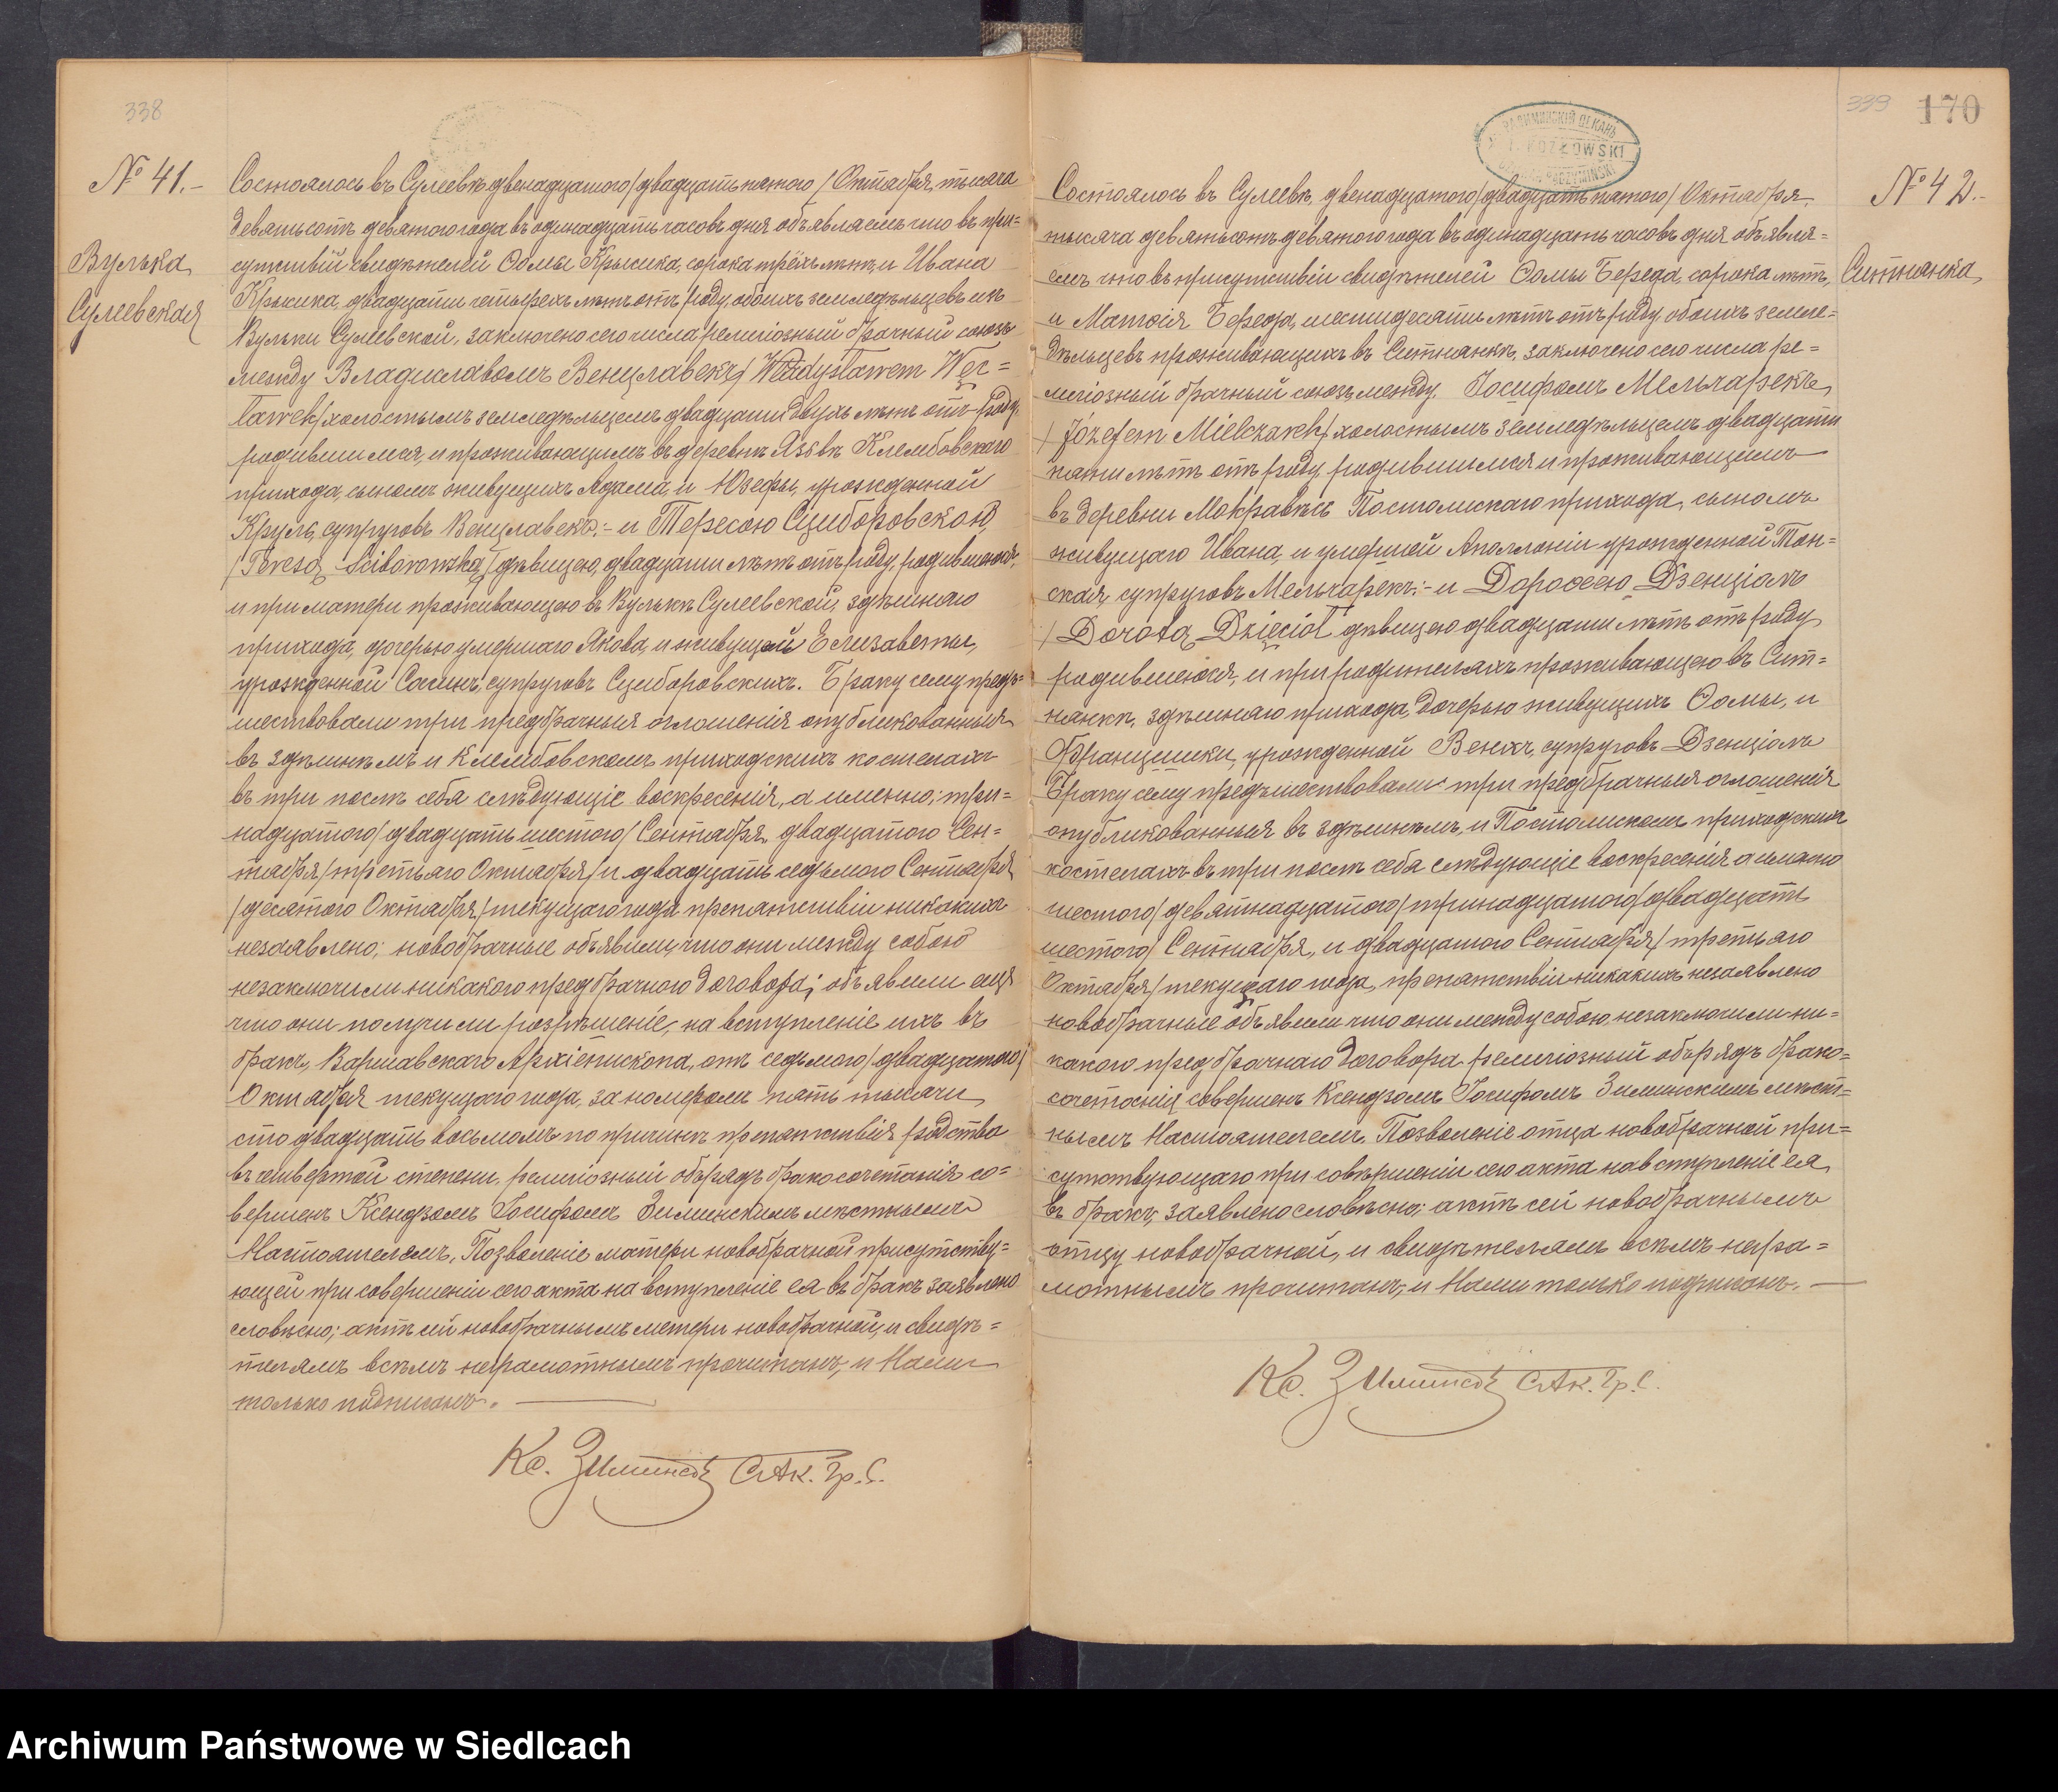 338
№ 41.-
Вулька
Сулеевская
Состоялось въ Сулеевѣ двенадцатого /двадцать пятого/ Октября, тысяча
девятьсотъ девятого года въ одинадцать часовъ дня объявляемъ что въ при=
сутствіи свидѣтелей Ѳомы Крысика, сорока трёхъ лѣтъ, и Ивана
Крысика, двадцати четырехъ лѣтъ отъ роду, обоихъ земледѣльцевъ изъ
Вульки Сулеевской, заключено сего числа религіозный брачный союзъ
между Владиславомъ Венцлавекъ /Władysławem Węc=
ławek/ холостымъ земледѣльцемъ двадцати двухъ лѣтъ отъ роду,
родившимся, и проживающимъ въ деревнѣ Язвѣ Клембовскаго
прихода, сыномъ живущихъ Адама, и Юзефы, урожденной
Круль, супруговъ Венцлавекъ:- и Тересою Сциборовскою
/Teresą Sciborowską/ дѣвицею, двадцати лѣтъ отъ роду, родившеюся,
и при матери проживающею въ Вулькѣ Сулеевской, здѣшняго
прихода, дочерью умершаго Якова, и живущей Елизаветы,
урожденной Сасинъ, супруговъ Сциборовскихъ. Браку сему предъ=
шествовали три предбрачныя оглошенія опубликованныя
въ здѣшнѣмъ и Клембовскомъ приходскихъ костелахъ
въ три послѣ себя слѣдующіе воскресенія, а именно; три=
надцатого /двадцать шестого/ Сентября, двадцатого Сен=
тября /третьяго Октября/ и двадцать седьмого Сентября
/десятого Октября/ текущаго года, препятствіи никакихъ
незаявлено; новобрачные объявили, что они между собою
незаключили никакого предбрачного договора; объявили еще
что они получили розрѣшеніе, на вступленіе ихъ въ
бракъ, Варшавскаго Архіепископа, отъ седьмого /двадцатого/
Октября текущаго года, за номеромъ пять тысячи
сто двадцать восьмомъ по причинѣ препятствія родства
въ четвертой степени. религіозный обърядъ бракосочетанія со=
вершенъ Ксендзомъ Іосифомъ Зиминскимъ мѣстнымъ
Настоятелемъ. Позволеніе матери новобрачной присутству=
ющей при совершеніи сего акта на вступленіе ея въ бракъ заявлено
словѣсно; актъ сей новобрачнымъ матери новобрачной, и свидѣ=
телямъ всѣмъ неграмотнымъ прочитанъ, и Нами
только подписанъ.
Кс. Зиминскі С. Ак. Гр. С.
339 170
KOZŁOWSKI
№ 42.-
Ситнянка
Состоялось въ Сулеевѣ, двенадцатого /двадцать пятого/ Октября,
тысяча девятьсотъ девятого года въ одинадцать часовъ дня объявля=
емъ что въ присутствіи свидѣтелей Ѳомы Береда, сорока лѣтъ,
и Матвія Береда, шестидесяти лѣтъ отъ роду, обоихъ земле=
дѣльцевъ проживающихъ въ Ситнянкѣ, заключено сего числа ре=
лигіозный брачный союзъ между Іосифомъ Мельчарекъ
/Józefem Mielczarek/ холостымъ земледѣльцемъ двадцати
пяти лѣтъ отъ роду, родившимся и проживающимъ
въ деревни Мокравѣсь Постолискаго прихода, сыномъ
живущаго Ивана, и умершей Аполлоніи урожденной Тон=
ская, супруговъ Мельчарекъ;- и Доротею Дзенціолъ
/Dorotą Dzięcioł дѣвицею двадцати лѣтъ отъ роду,
родившеюся, и при родителахъ проживающею въ Сит=
нянкѣ, здѣшняго прихода, дочерью живущихъ Ѳомы, и
Францишки, урожденной Венхъ, супруговъ Дзенціолъ
Браку сему предъшествовали три предбрачныя оглошенія
опубликованныя въ здѣшнѣмъ, и Постолискомъ приходскихъ
костелахъ въ три послѣ себя слѣдующіе воскресенія а имяно
шестого /девятнадцатого/ тринадцатого /двадцать
шестого/ Сентября, и двадцатого Сентября /третьяго
Октября/ текущаго года, препятствіи никакихъ незаявлено
новобрачные объявили что они между собою, незаключили ни=
какого предбрачнаго договора религіозный обърядъ брако=
сочетанія совершенъ Ксендзомъ Іосифомъ Зиминскимъ мѣст=
нымъ Настоятелемъ. Позволеніе отца новобрачной при=
сутствующаго при совѣршеніи сего акта на вступленіе ея
въ бракъ, заявлено словѣсно; актъ сей новобрачнымъ
отцу новобрачной, и свидѣтелямъ всѣмъ негра=
мотнымъ прочитанъ, и Нами только подписанъ.
Кс. Зиминскі С. Ак. Гр. С.
Archiwum Państwowe w Siedlcach